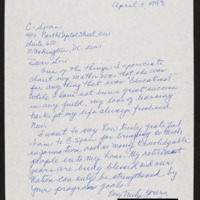 April 3, 1992
C-Span
400 North Capitol Street, NW
Suite 650
Washington, DC 20001
Dear Sirs:
One of the things I appreciate
about my mother was that she was
for any thing that was "Educational".
While I have not been a great success
in any field, my love of learning
has kept my life always fresh and
new.
I want to say how truly grateful
I am to C-Span for bringing so much
information and so many knowledgeable
people into my home. My retirement
years are being blessed and our
nation can only be strengthened by
your program goals.
Very truly yours,